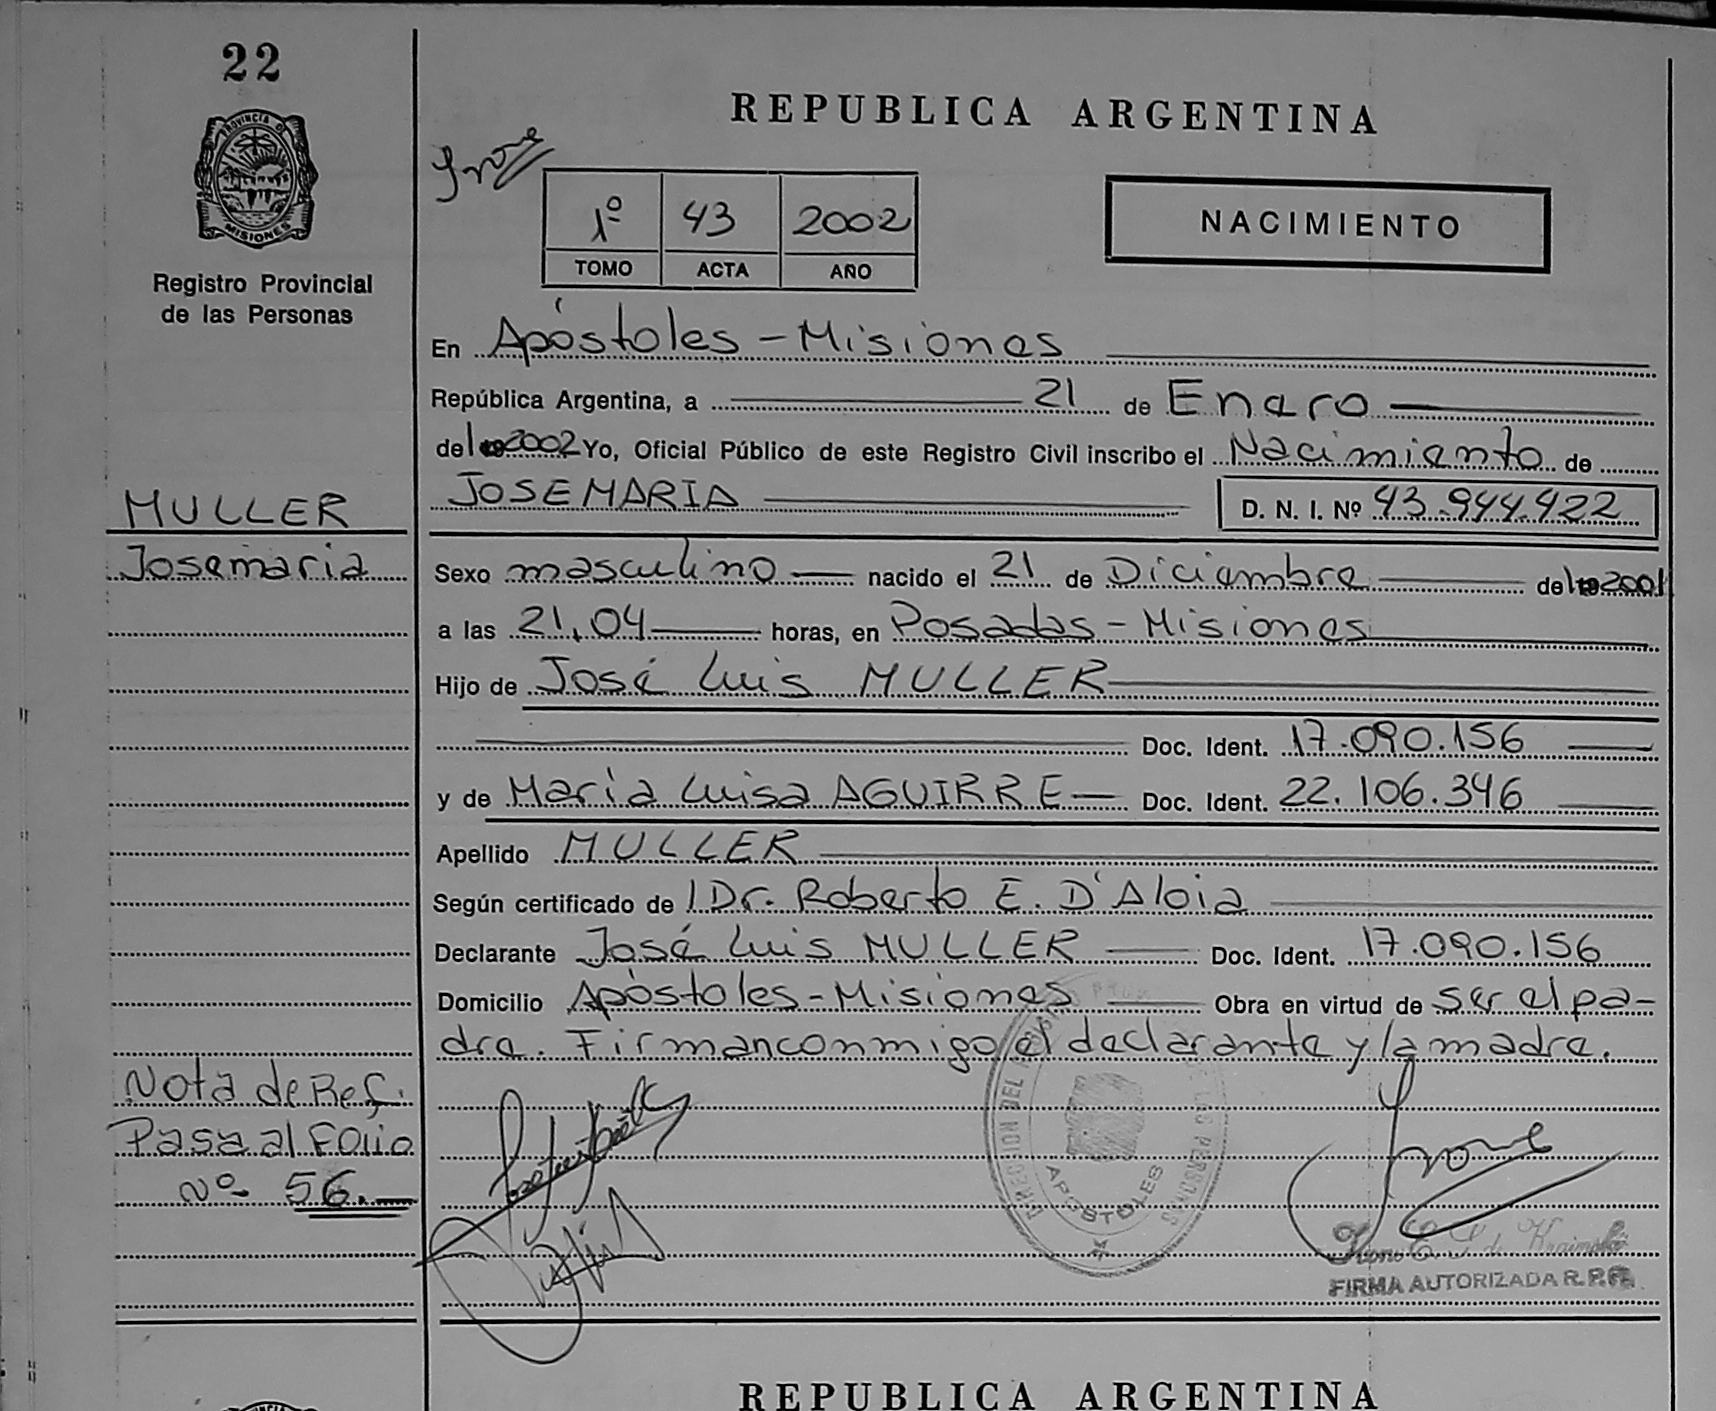 22
PROVINCIA DE
MISIONES
Registro Provincial
de las Personas
MULLER
Josemaria
Nota de Ref.
Pasa al Folio
Nº 56.
REPUBLICA ARGENTINA
1º 43 2002
TOMO ACTA AÑO
NACIMIENTO
En Apóstoles - Misiones
República Argentina, a 21 de Enero
del 2002 Yo, Oficial Público de este Registro Civil inscribo el Nacimiento de
JOSEMARIA D. N. I. Nº 43.944.422
Sexo masculino nacido el 21 de Diciembre del 2001
a las 21,04 horas, en Posadas - Misiones
Hijo de José Luis MULLER
Doc. Ident. 17.090.156
y de Maria Luisa AGUIRRE Doc. Ident. 22.106.346
Apellido MULLER
Según certificado de l Dr. Roberto E. D'Aloia
Declarante José Luis MULLER Doc. Ident. 17.090.156
Domicilio Apóstoles - Misiones Obra en virtud de ser el pa-
dre. Firman conmigo el declarante y la madre.
DIRECCION DEL REGISTRO DE LAS PERSONAS
APOSTOLES
FIRMA AUTORIZADA R.P.P.
REPUBLICA ARGENTINA